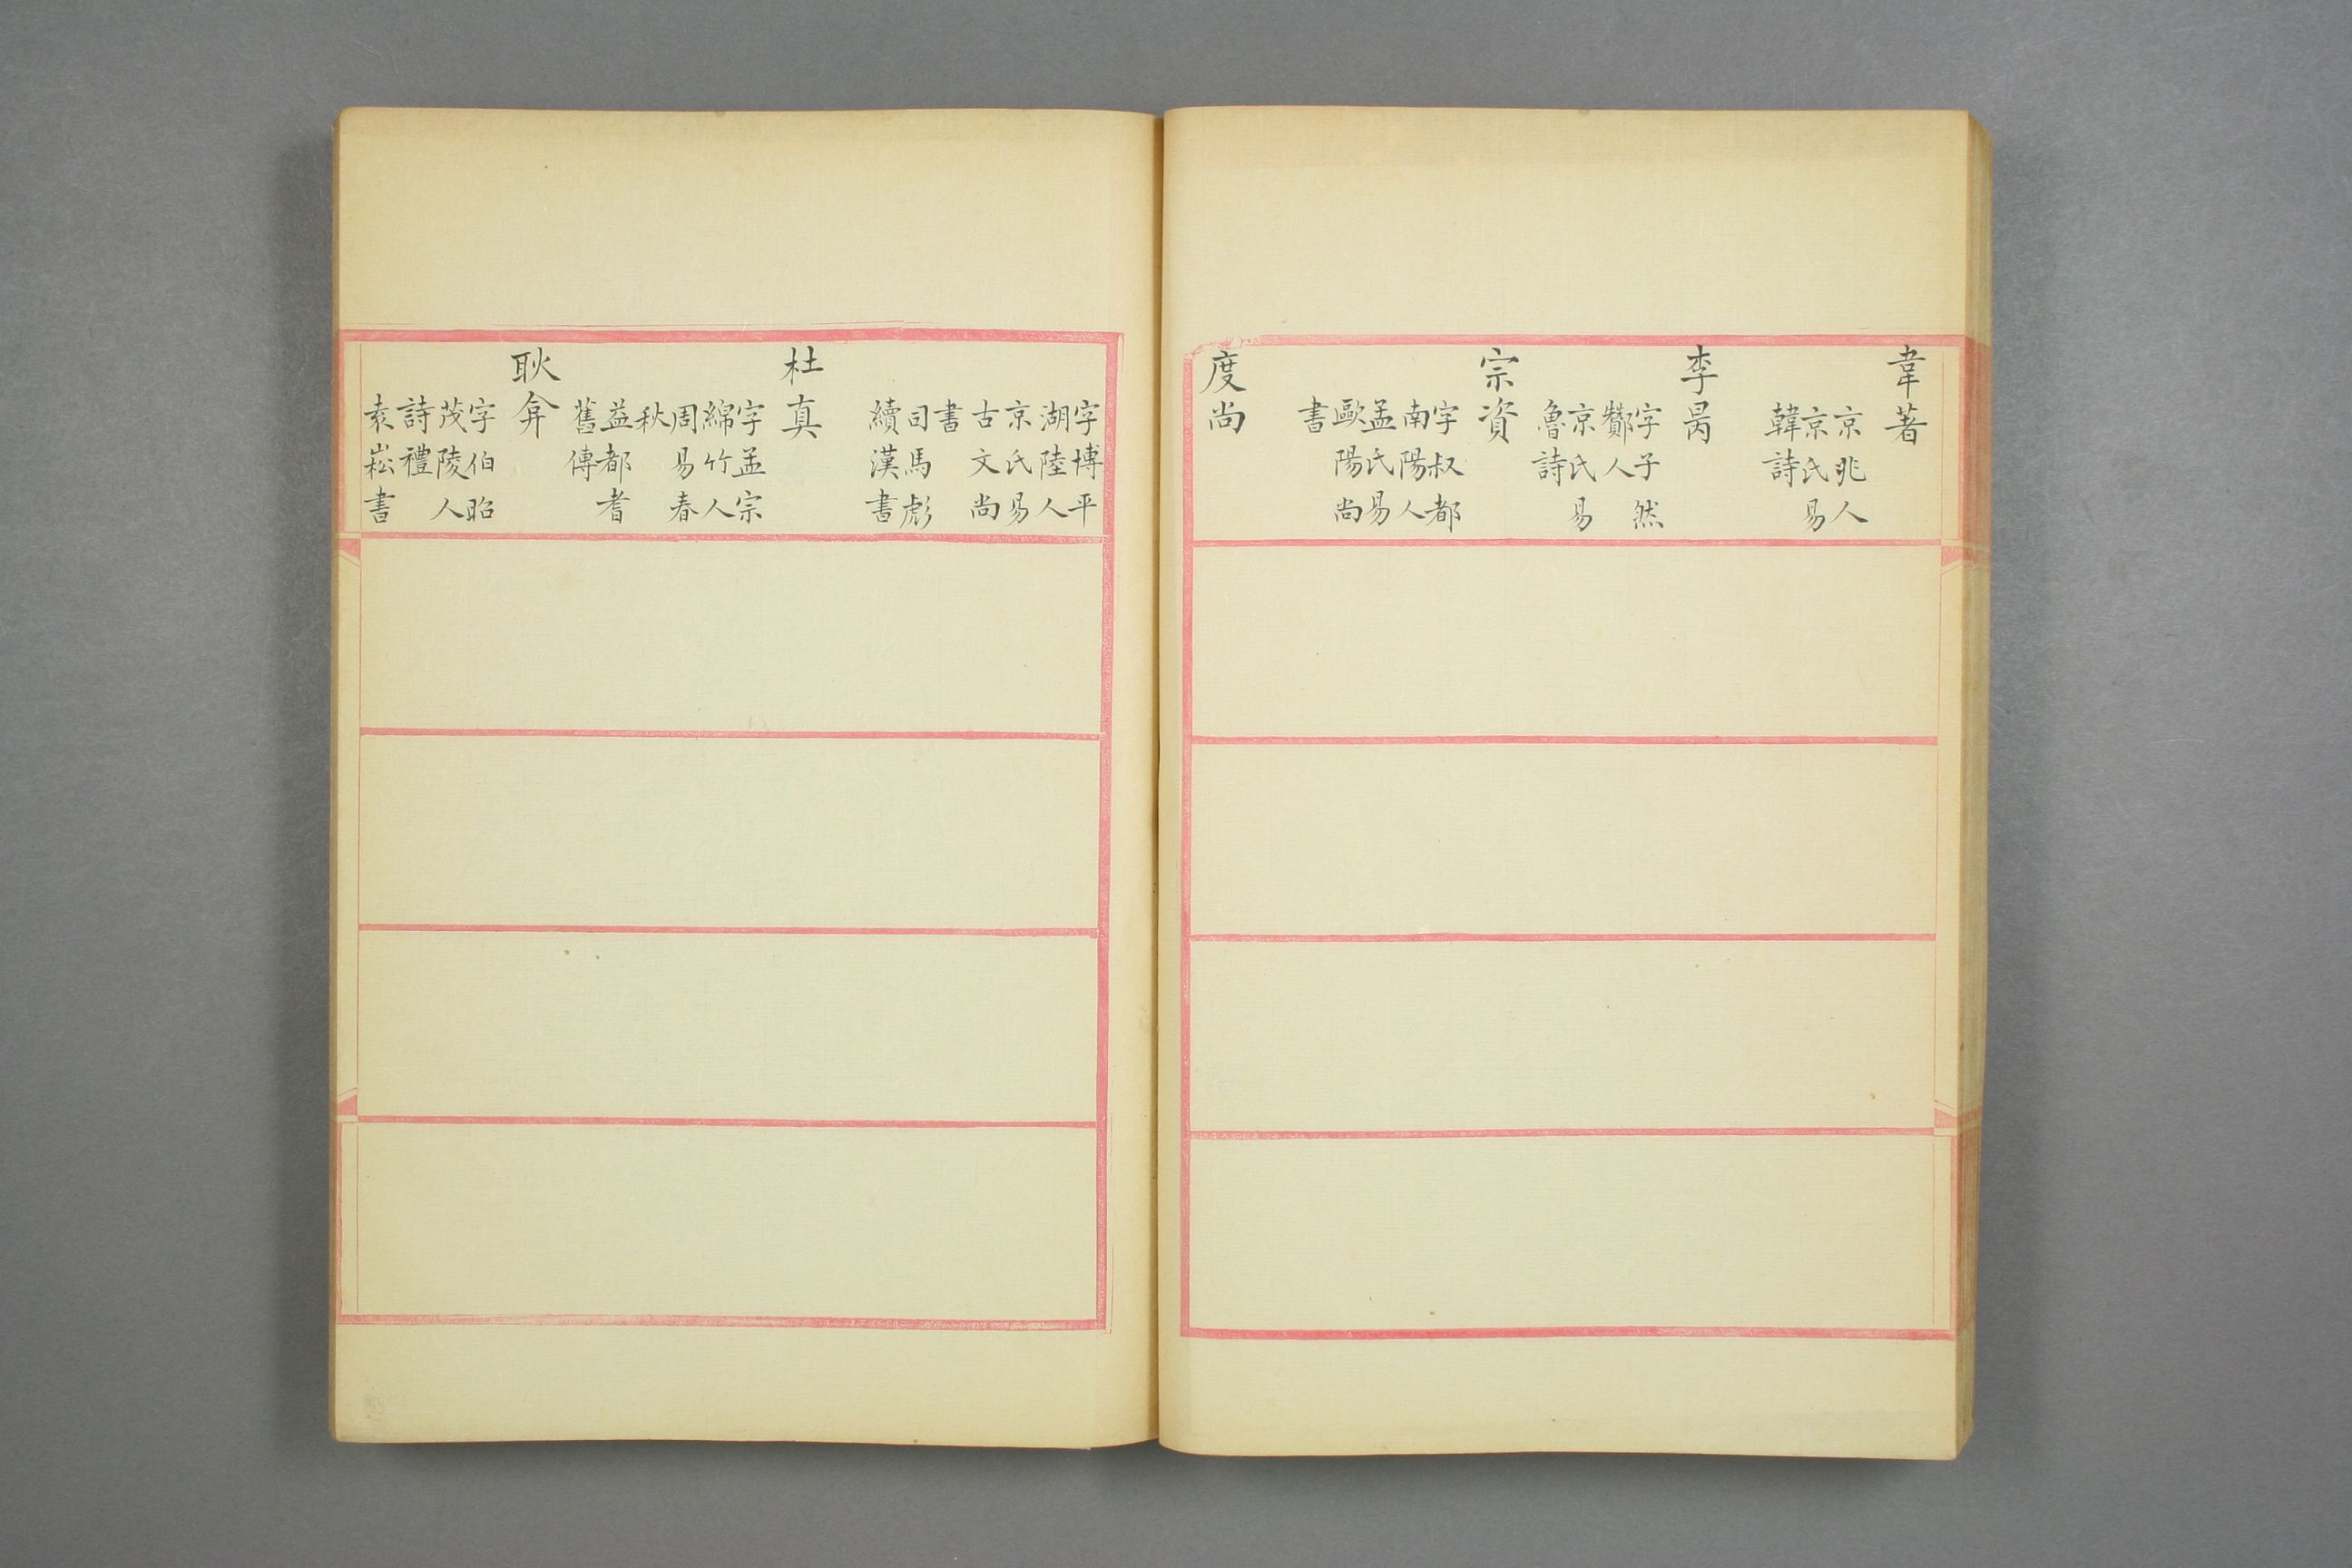 韋著
京兆人
京氏易
韓詩
李昺
字子然
酇人
京氏易
魯詩
宗資
字叔都
南陽人
孟氏易
歐陽尚
書
度尚
字博平
湖陸人
京氏易
古文尚
書
司馬彪
續漢書
杜真
字孟宗
綿竹人
周易春
秋
益都耆
舊傳
耿弇
字伯昭
茂陵人
詩禮
袁崧書